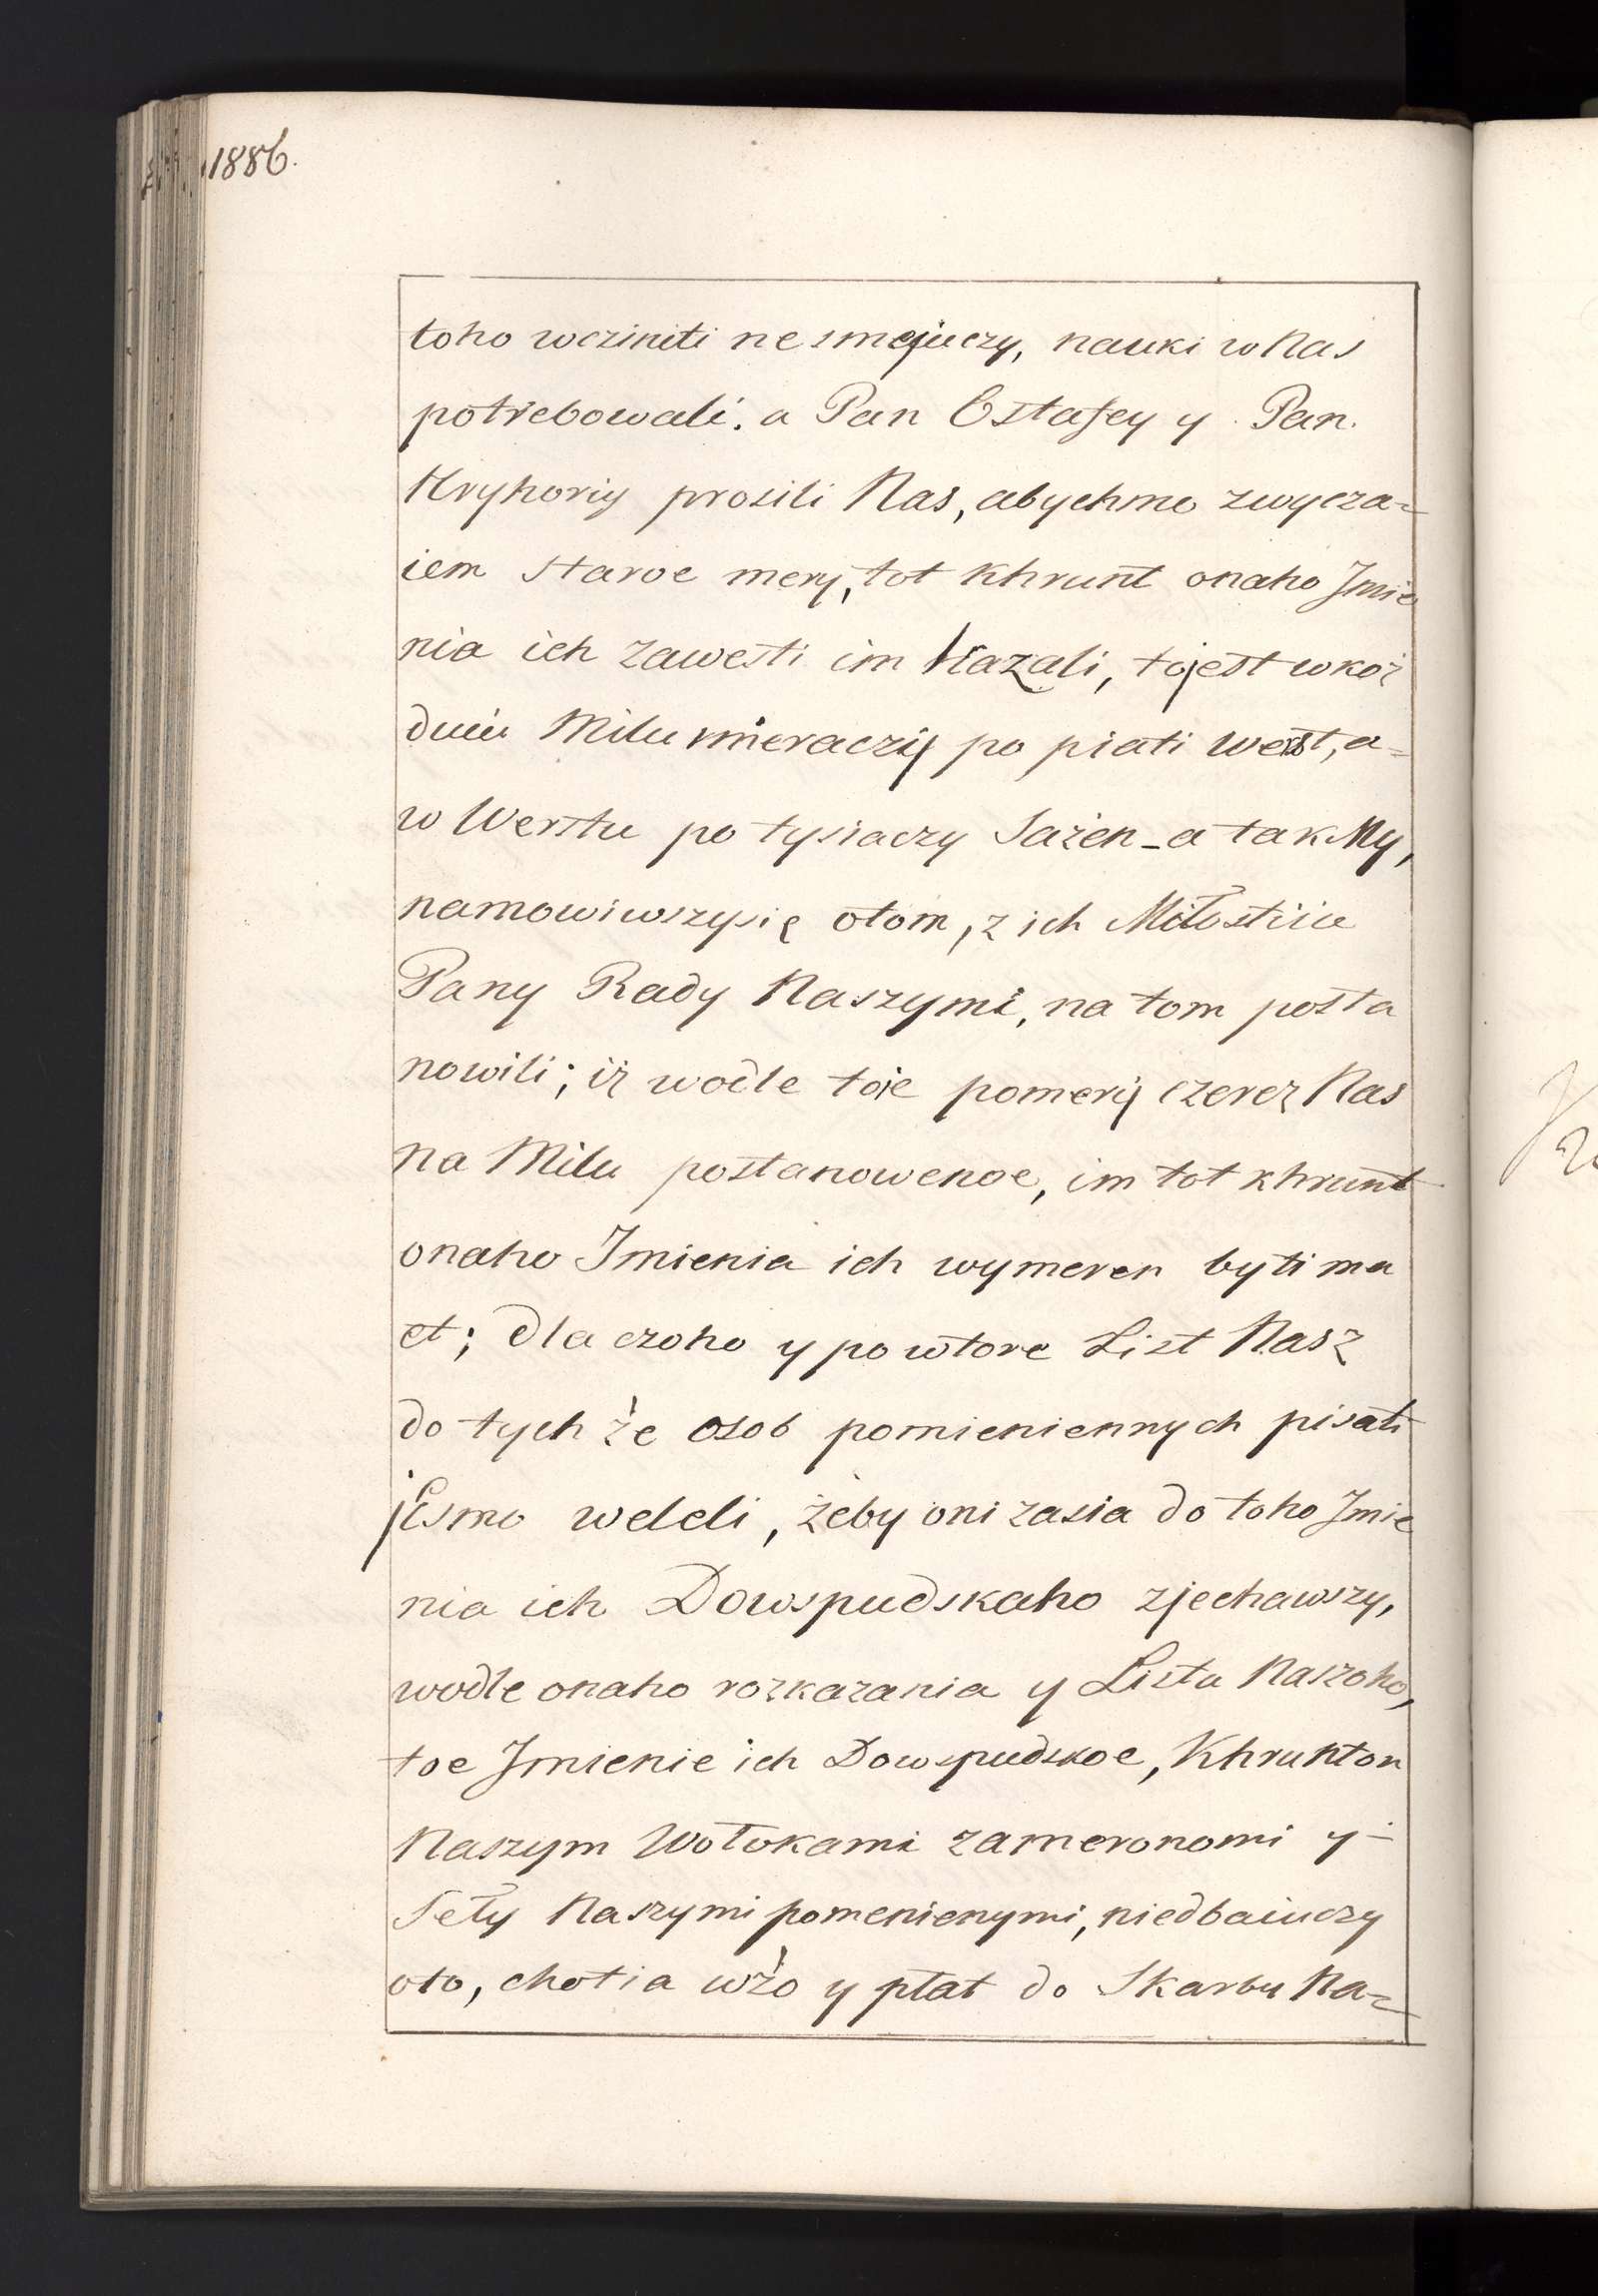 1886.
toho wcziniti ne smejuczy, nauki w Nas
potrebowali. a Pan Ostafey y Pan.
Hryhoriy prosili Nas, abychmo zwycza=
iem staroe mery, tot Khrunt onaho Jmie
nia ich zawesti im Kazali, to jest w koż
duiu Milu mieraczy po piati werst, a=
w Werstu po tysiaczy Sażen - a tak My,
namowiwszysię otom, z ich Miłostiiu
Pany Rady Naszymi, na tom posta
nowili; iż wodle toie pomery czerez Nas
na Milu postanowenoe, im tot khrunt
onaho Jmienia ich wymeren byti ma
et; dla czoho y powtore List Nasz
do tych że osob pomieniennych pisati
jesmo weleli, żeby oni zasia do toho Jmie
nia ich Dowspudskaho zjechawszy,
wodle onaho rozkazania y Lista Naszoho,
toe Jmienie ich Dowspudskoe, Khruntom
Naszym Wołokami zameronomi y=
Seły Naszymi pomenienymi, niedbaiuczy
oto, chotia wżo y płat do Skarbu Na=